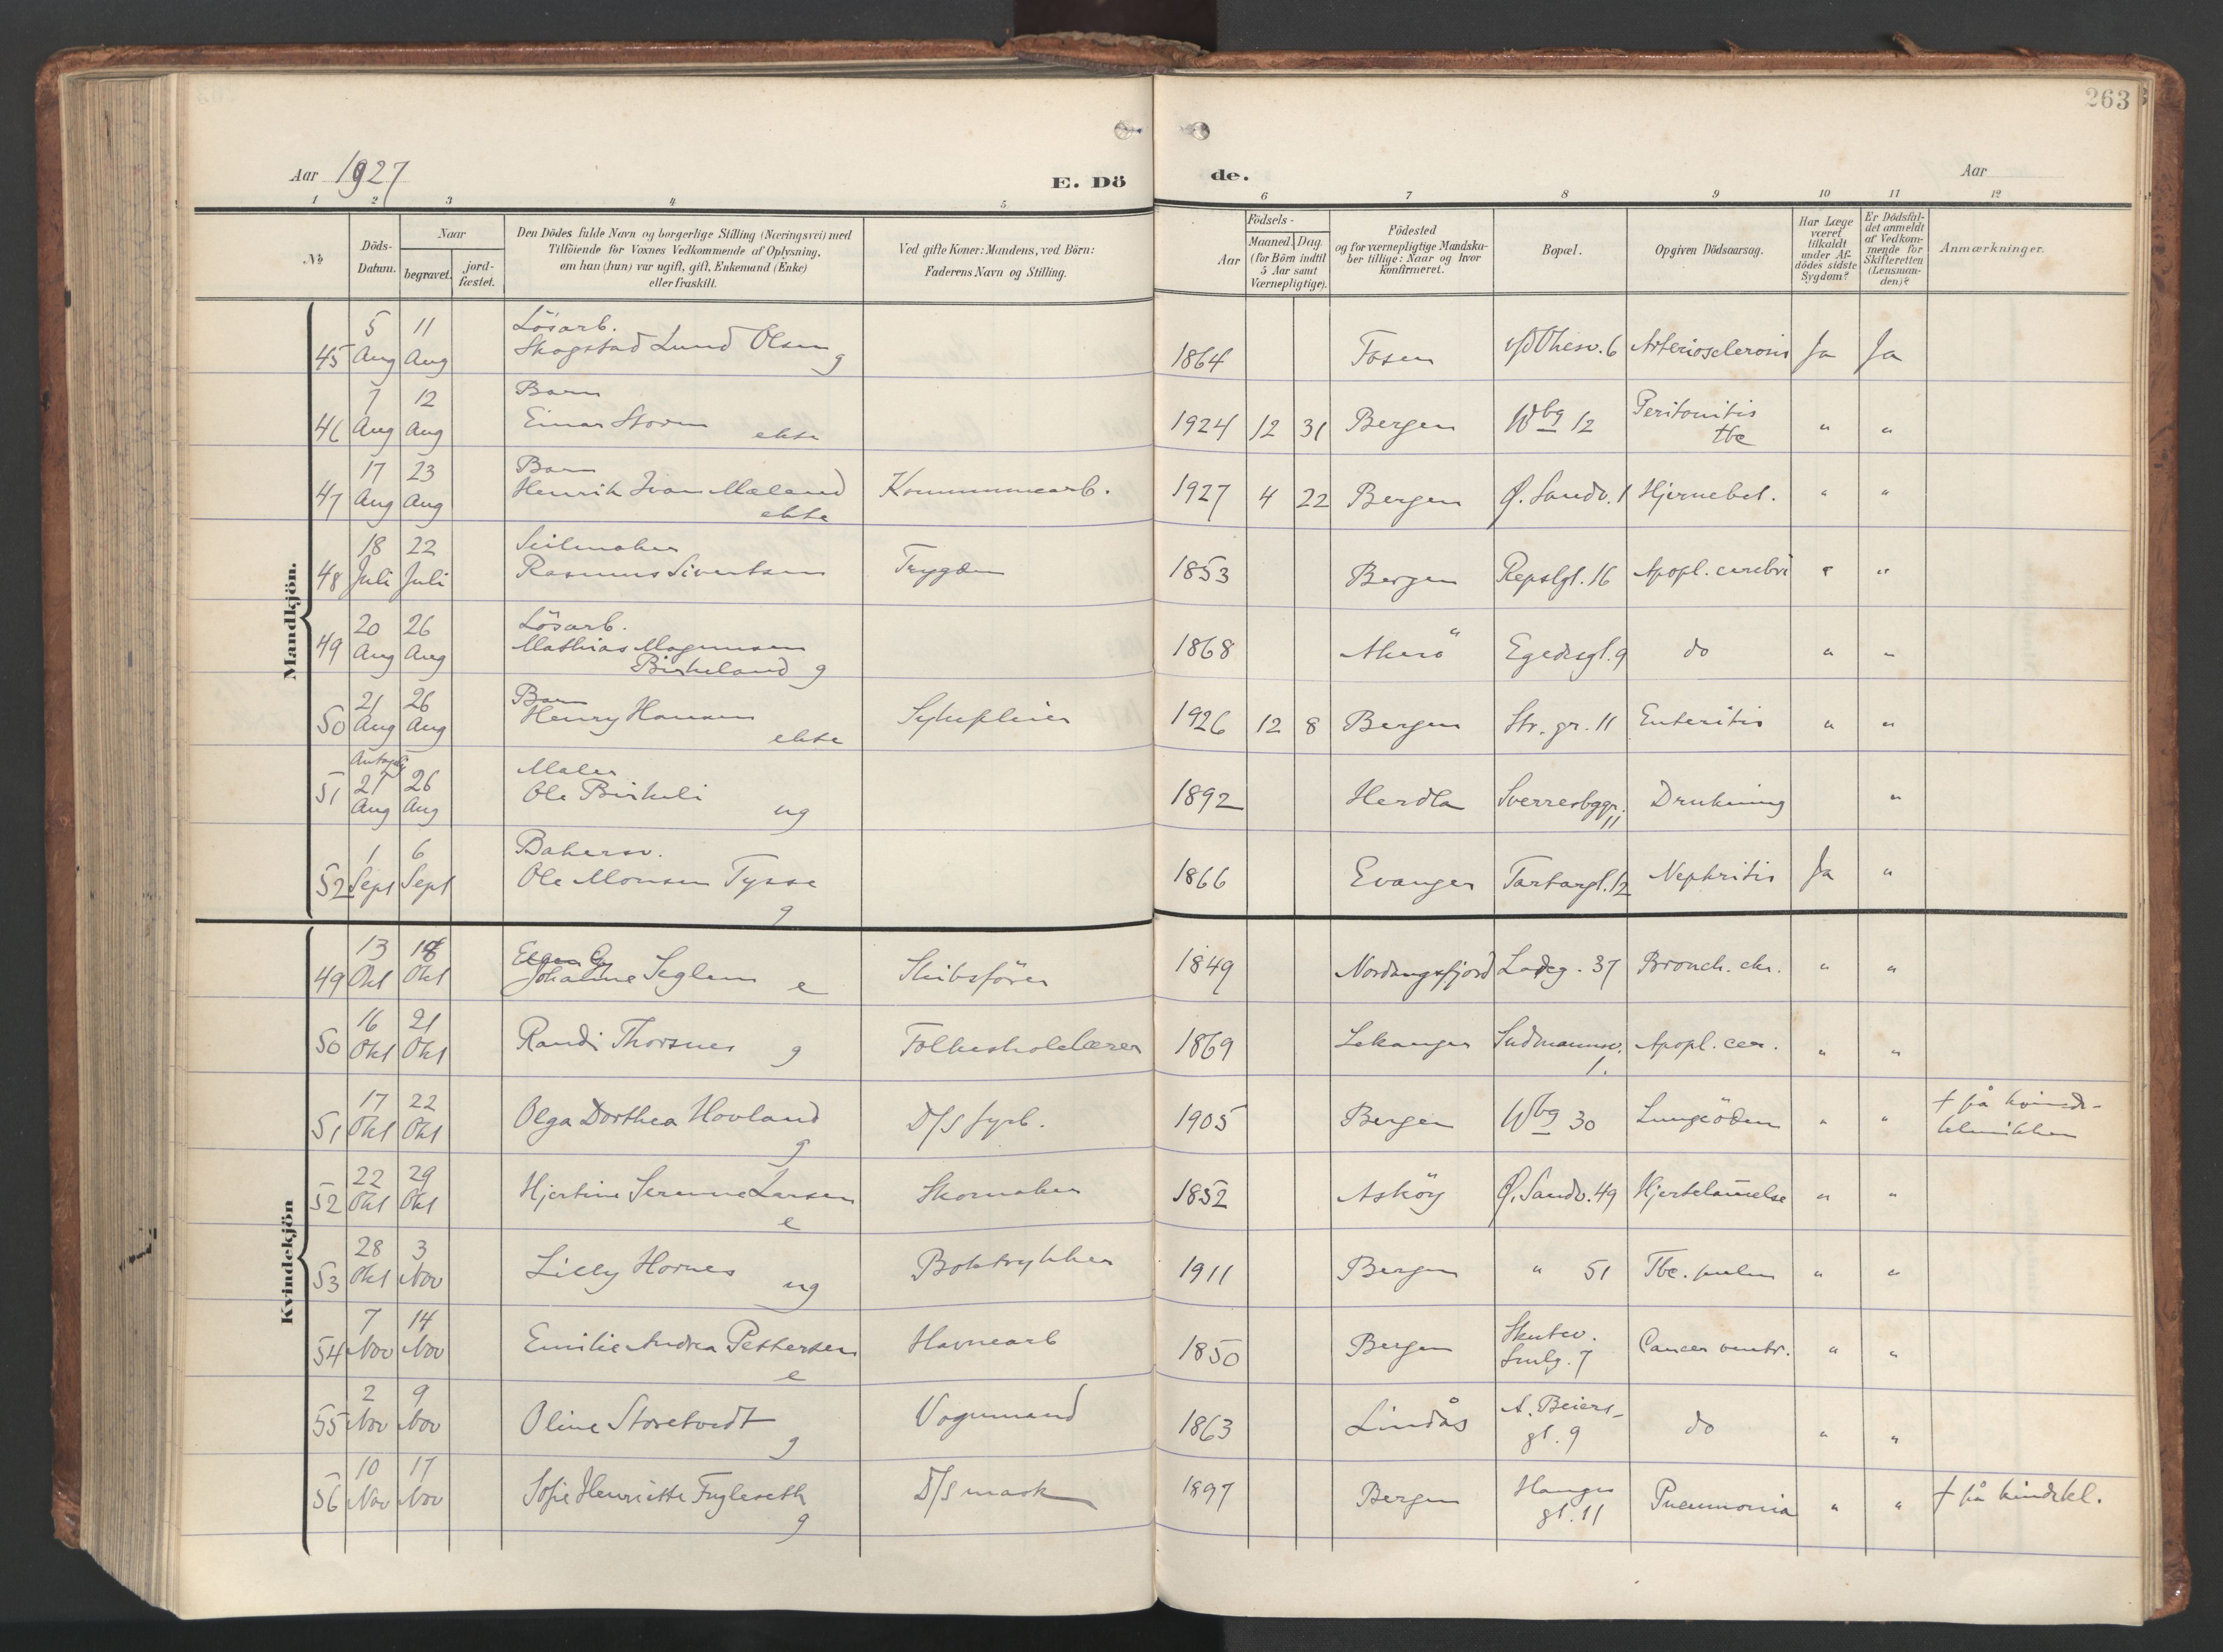 263
Aar 1927
E. Dö
de.
Aar
1 2 3 4 5 6 7 8 9 10 11 12
No
Döds-
Datum.
Naar
begravet.
jord-
fæstet.
Den Dödes fulde Navn og borgerlige Stilling (Næringsvei) med
Tilföiende for Voxnes Vedkommende af Oplysning,
om han (hun) var ugift, gift, Enkemand (Enke)
eller fraskilt.
Ved gifte Koner: Mandens, ved Börn:
Faderens Navn og Stilling.
Födsels-
Aar
Maaned. Dag.
(for Börn indtil
5 Aar samt
Værnepligtige).
Födested
og for værnepligtige Mandska-
ber tillige: Naar og hvor
Konfirmeret.
Bopæl.
Opgiven Dödsaarsag.
Har Læge
været
tilkaldt
under Af-
dödes sidste
Sygdom?
Er Dödsfal-
det anmeldt
af Vedkom-
mende for
Skifteretten
(Lensman-
den)?
Anmærkninger.
Mandkjön.
5 11 Lösarb.
45 Aug Aug Skogstad Lund Olsen g 1864 Fosen 6 Arteriosclerosis Ja Ja
7 12 Barn
46 Aug Aug Einar Storm ekte 1924 12 31 Bergen Wbg 12 Peritonitis tbc " "
17 23 Barn
47 Aug Aug Henrik Ivan Mæland ekte Kommunearb. 1927 4 22 Bergen Ø. Sandv. 1 Hjernebet. " "
18 22 Seilmaker
48 Juli Juli Rasmus Sivertsen Trygden 1853 Bergen Repslgt. 16 Apopl. cerebri " "
20 26 Lösarb.
49 Aug Aug Mathias Magnussen
Birkeland g 1868 Akerö Egedesgt. 9 do " "
21 26 Barn
50 Aug Aug Henry Hansen ekte Sykepleier 1926 12 8 Bergen Str. gr. 11 Enteritis " "
Antagelig
21 26 Maler
51 Aug Aug Ole Birkeli ug 1892 Herdla Sverresbggr. 11 Drukning "
1 6 Bakersv.
52 Sept Sept Ole Monsen Tysse g 1866 Evanger Tartargt. 12 Nephritis Ja "
Kvindekjön
13 18
49 Okt Okt Johanne Seglem e Skibsförer 1849 Nordangsfjord Ladeg. 37 Bronch. chr. " "
16 21
50 Okt Okt Randi Thorsnes g Folkeskolelærer 1869 Lekanger Sudmannsv. 1. Apopl. cer. " "
17 22
51 Okt Okt Olga Dorthea Hovland g D/S fyrb. 1905 Bergen Wbg 30 Lungeödem " " † på kvinde-
klinikken
22 29
52 Okt Okt Hjertine Serenne Larsen e Skomaker 1852 Asköy Ø. Sandv. 49 Hjertelam̄else " "
28 3
53 Okt Nov Lilly Hornes ug Boktrykker 1911 Bergen " 51 Tbc. pulm " "
7 14
54 Nov Nov Emilie Andrea Pettersen e Havnearb 1850 Bergen Skutev.
Smlg. 7 Cancer ventr. " "
2 9
55 Nov Nov Oline Storetvedt g Vognmand 1863 Lindås A. Beiers-
gt. 9 do " "
10 17
56 Nov Nov Sofie Henriette Fugleseth g D/S mask 1897 Bergen Hauges
gt. 11 Pneumonia " " † på kvindekl.